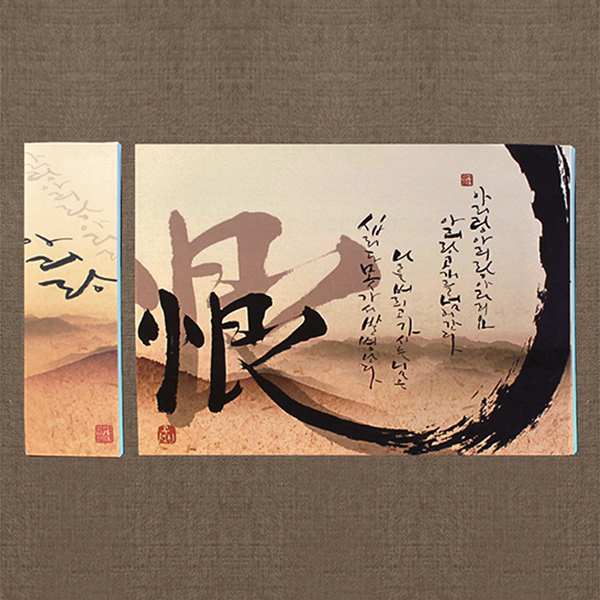 아리랑
恨
아리랑아리랑아라리요
아리랑고개를넘어간다
나를버리고가시는님은
십리도못가서발병난다